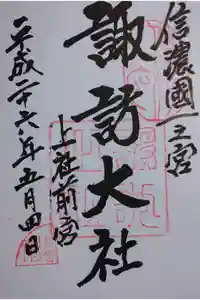 信濃國一之宮
諏訪大社
上社前宮
平成二十六年五月四日